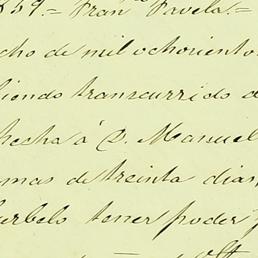 859.= Fran.co Favela.=
cho de mil ochocientos
biendo transcurrido d
hecha á D. Manuel
mas de treinta dias,
urbelo tener poder